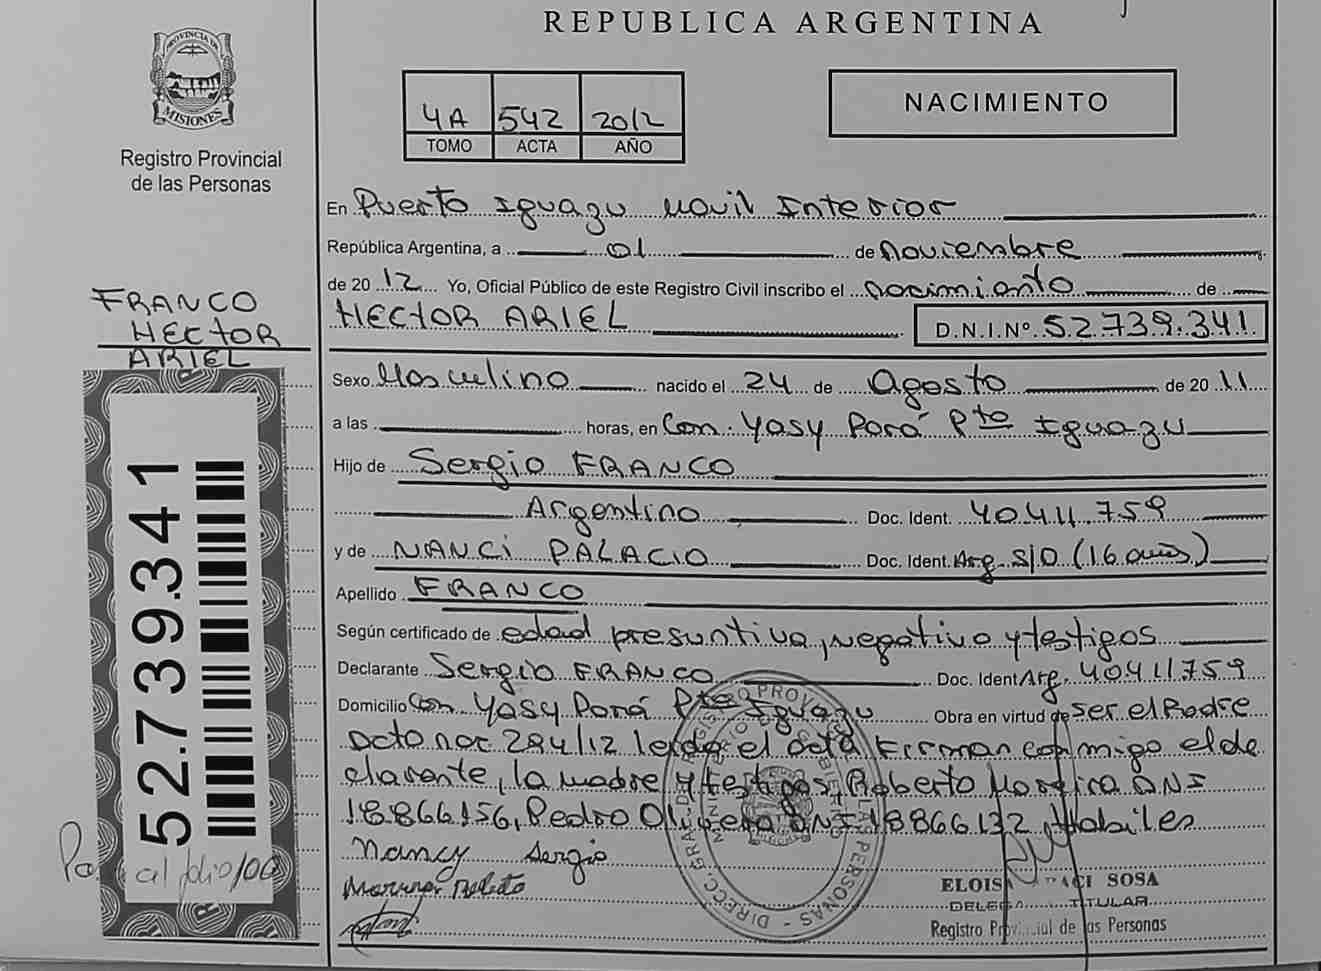 REPUBLICA ARGENTINA
PROVINCIA DE
MISIONES
Registro Provincial
de las Personas
4A 542 2012
TOMO ACTA AÑO
NACIMIENTO
En Puerto Iguazu Movil Interior
República Argentina, a 01 de Noviembre
de 2012 Yo, Oficial Público de este Registro Civil inscribo el nacimiento de
HECTOR ARIEL D.N.I.Nº 52.739.341
FRANCO
HECTOR
ARIEL
52.739.341
Sexo Masculino nacido el 24 de Agosto de 2011
a las horas, en Com. Yasy Porá Pto Iguazu
Hijo de Sergio FRANCO
Argentino Doc. Ident. 40.411.759
y de NANCI PALACIO Doc. Ident. Arg. S/D (16 años)
Apellido FRANCO
Según certificado de edad presuntiva, negativo y testigos
Declarante Sergio FRANCO Doc. Ident Arg. 40411759
Domicilio Com Yasy Porá Pto Iguazu Obra en virtud de ser el Padre
Dcto nac 294/12 leida el acta Firman conmigo el de
clarante, la madre y testigos, Roberto Moreira DNI
18866156, Pedro Olivera DNI 18866132, Habiles
Nancy Sergio
al folio 100
ELOISA SOSA
TITULAR
Registro de las Personas